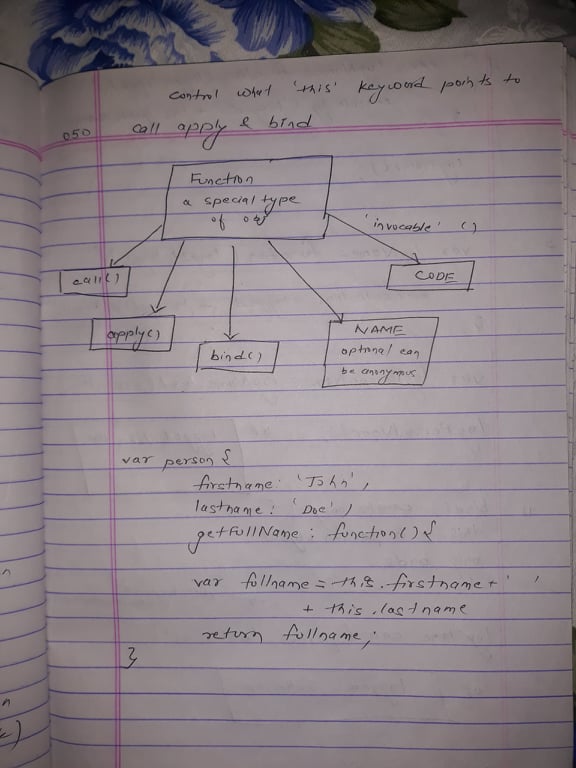 control what 'this' keyword points to
050 call apply & bind
Function
a special type
of obj
'invocable' ()
call()
CODE
apply()
bind()
NAME
optional can
be anonymous
var person {
firstname: 'John',
lastname: 'Doe',
getFullName: function() {
var fullname = this.firstname + ' '
+ this.lastname
return fullname;
}